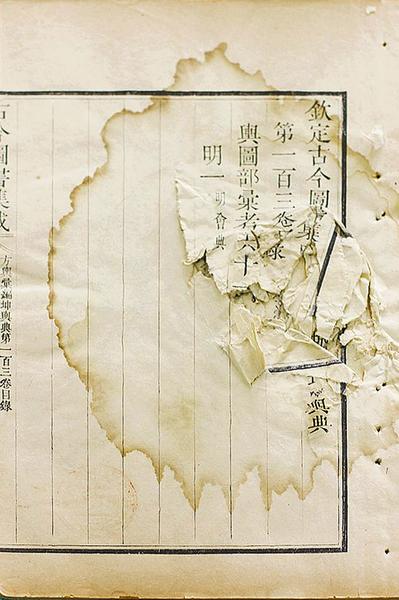 欽定古今圖書集
輿典
第一百三卷目錄
輿圖部彙考六十
明一 明會典
古今圖書集成
方輿彙編坤輿典第一百三卷目錄